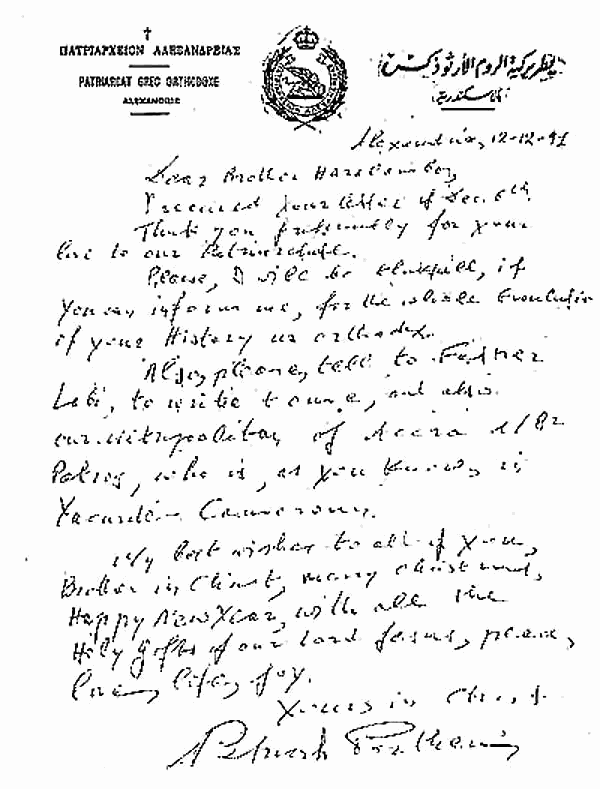 ΠΑΤΡΙΑΡΧΕΙΟΝ ΑΛΕΞΑΝΔΡΕΙΑΣ
PATRIARCAT GREC ORTHODOXE
ALEXANDRIE
بطريركية الروم الأرثوذكس
بالاسكندرية
Alexandria, 12-12-91
Dear Brother
I received your letter of Dec. 6th.
Thank you for your
love to our Patriarchate.
Please, I will be thankfull, if
you can inform me, for the whole Evolution
of your History as orthodox.
Also, please, tell to Father
Labi, to write to me, and also
our Metropolitan of Accra
who is, as you know, in
Yaounde Cameroun.
My best wishes to all of you,
Brother in Christ, many christmas,
Happy New Year, with all the
Holy Gifts of our Lord Jesus, peace,
love, life, joy.
Yours in Christ